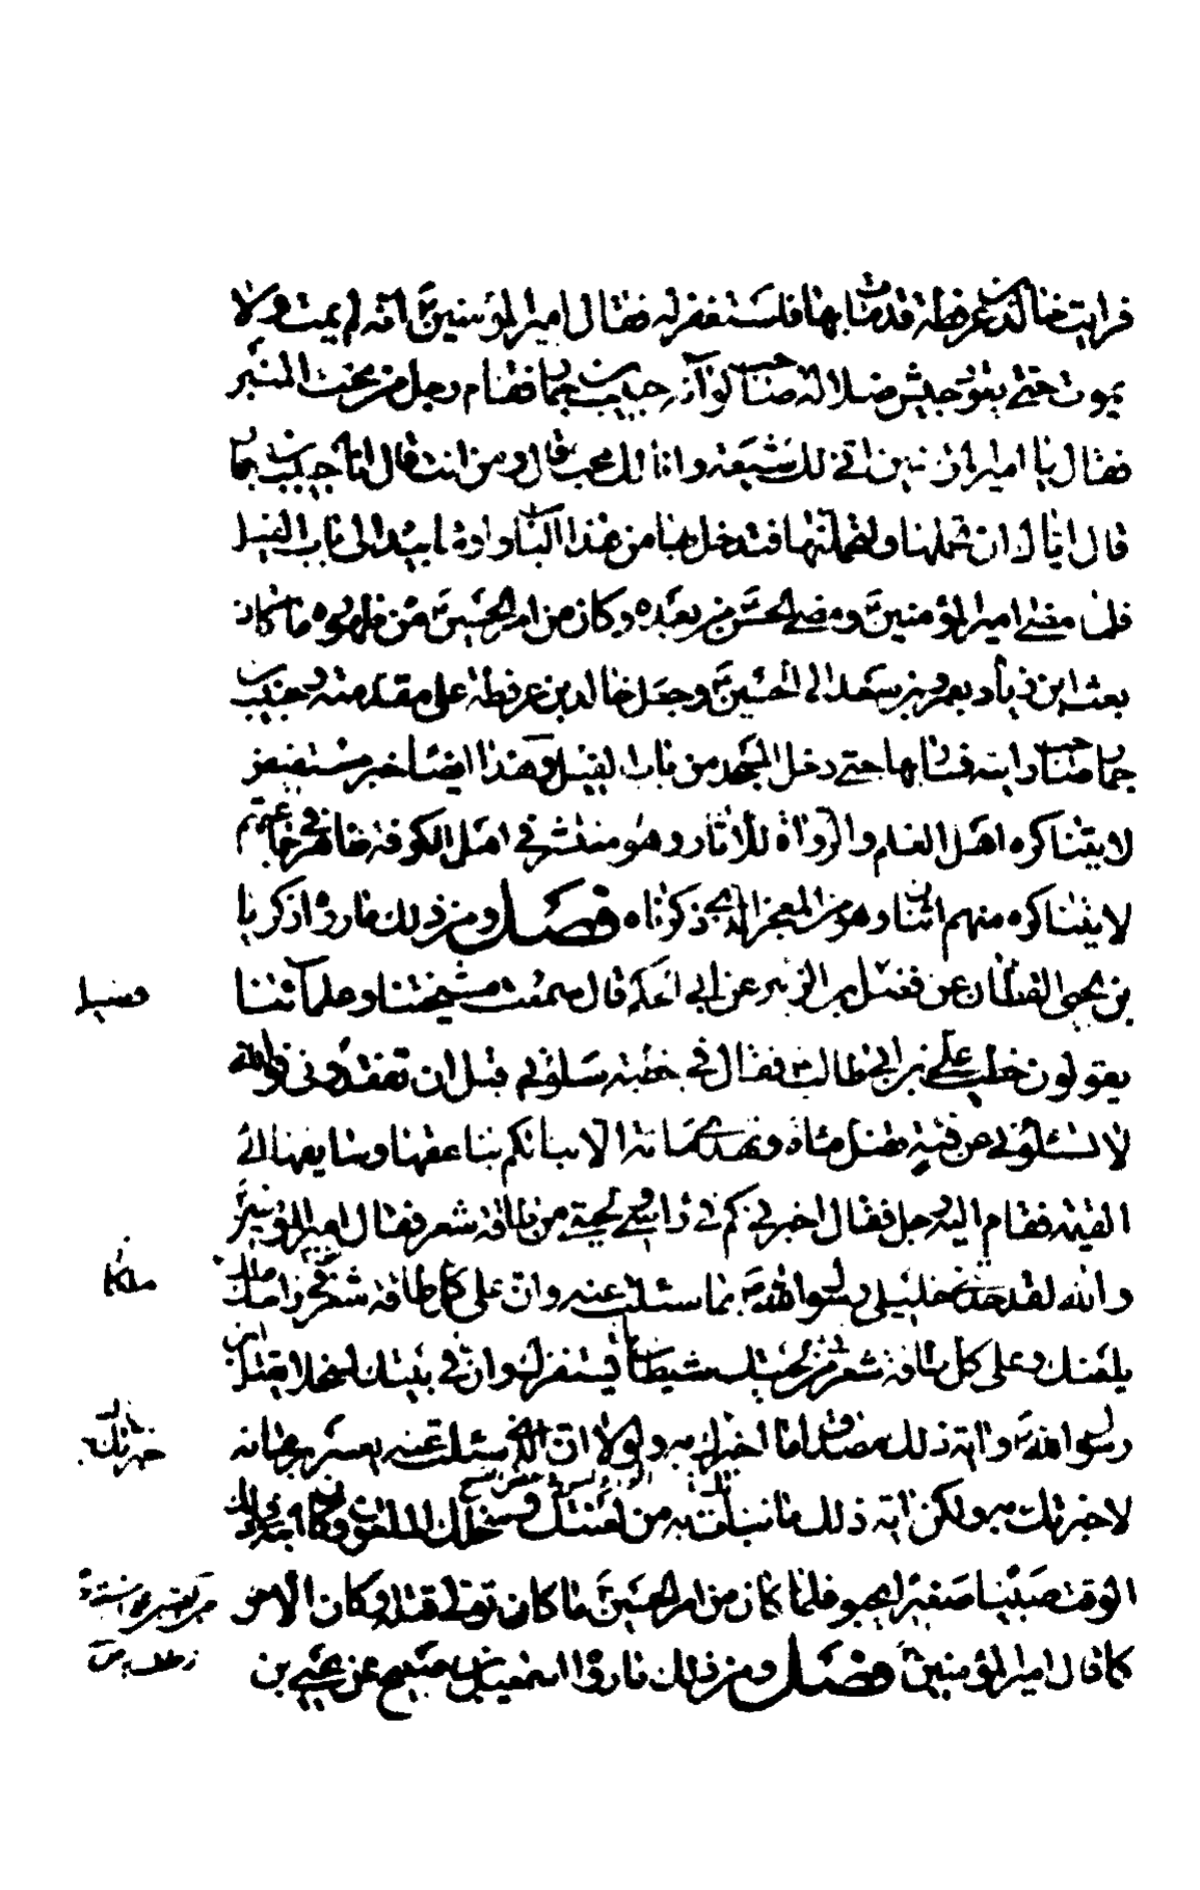 فرايت خالد بن عرفطة قد مات بها فاستغفر له فقال امير المؤمنين ع انه لم يمت ولا
يموت حتى يقود جيش ضلالة صاحب لوآئه حبيب بن جماز فقام رجل من تحت المنبر
فقال يا امير المؤمنين اني لك شيعة وانا لك محب قال ومن انت قال انا حبيب بن جماز
قال اياك ان تحملها ولتحملنها فتدخل بها من هذا الباب واومأ بيده الى باب الفيل
فلما مضى امير المؤمنين ع ومضى الحسن من بعده وكان من امر الحسين ع ومن ظهوره ما كان
بعث ابن زياد بعمر بن سعد الى الحسين ع وجعل خالد بن عرفطة على مقدمته وحبيب بن
جماز صاحب رايته فسار بها حتى دخل المسجد من باب الفيل وهذا ايضا خبر مستفيض
لا يتناكره اهل العلم والرواة للآثار وهو منتشر في اهل الكوفة ظاهر في جماعتهم
لا يتناكره منهم اثنان وهو من المعجز الذي ذكرناه فصل ومن ذلك ما رواه زكريا
بن يحيى القطان عن فضل بن الزبير عن ابي الحكم قال سمعت مشيختنا وعلمآئنا
يقولون خطب علي بن ابي طالب ع فقال في خطبته سلوني قبل ان تفقدوني فوالله
لا تسئلوني عن فئة تضل مائة وتهدي مائة الا نبأتكم بناعقها وسايقها الى يوم
القيمة فقام اليه رجل فقال اخبرني كم في راسي ولحيتي من طاقة شعر فقال امير المؤمنين ع
والله لقد حدثني خليلي رسول الله ص بما سئلت عنه وان على كل طاقة شعر في راسك ملك
يلعنك وعلى كل طاقة شعر من لحيتك شيطانا يستفزك وان في بيتك لسخلا يقتل ابن
رسول الله ص وآية ذلك مصداق ما اخبرتك به ولولا ان الذي سئلت عنه يعسر برهانه
لاخبرتك به ولكن آية ذلك ما نبأت به من لعنتك وسخلك الملعون وكان ابنه في ذلك
الوقت صبيا صغيرا يحبو فلما كان من امر الحسين ع ما كان تولى قتله وكان الامر
كما قال امير المؤمنين ع فصل ومن ذلك ما رواه اسمعيل بن صبيح عن يحيى بن
فضيل
ملكا